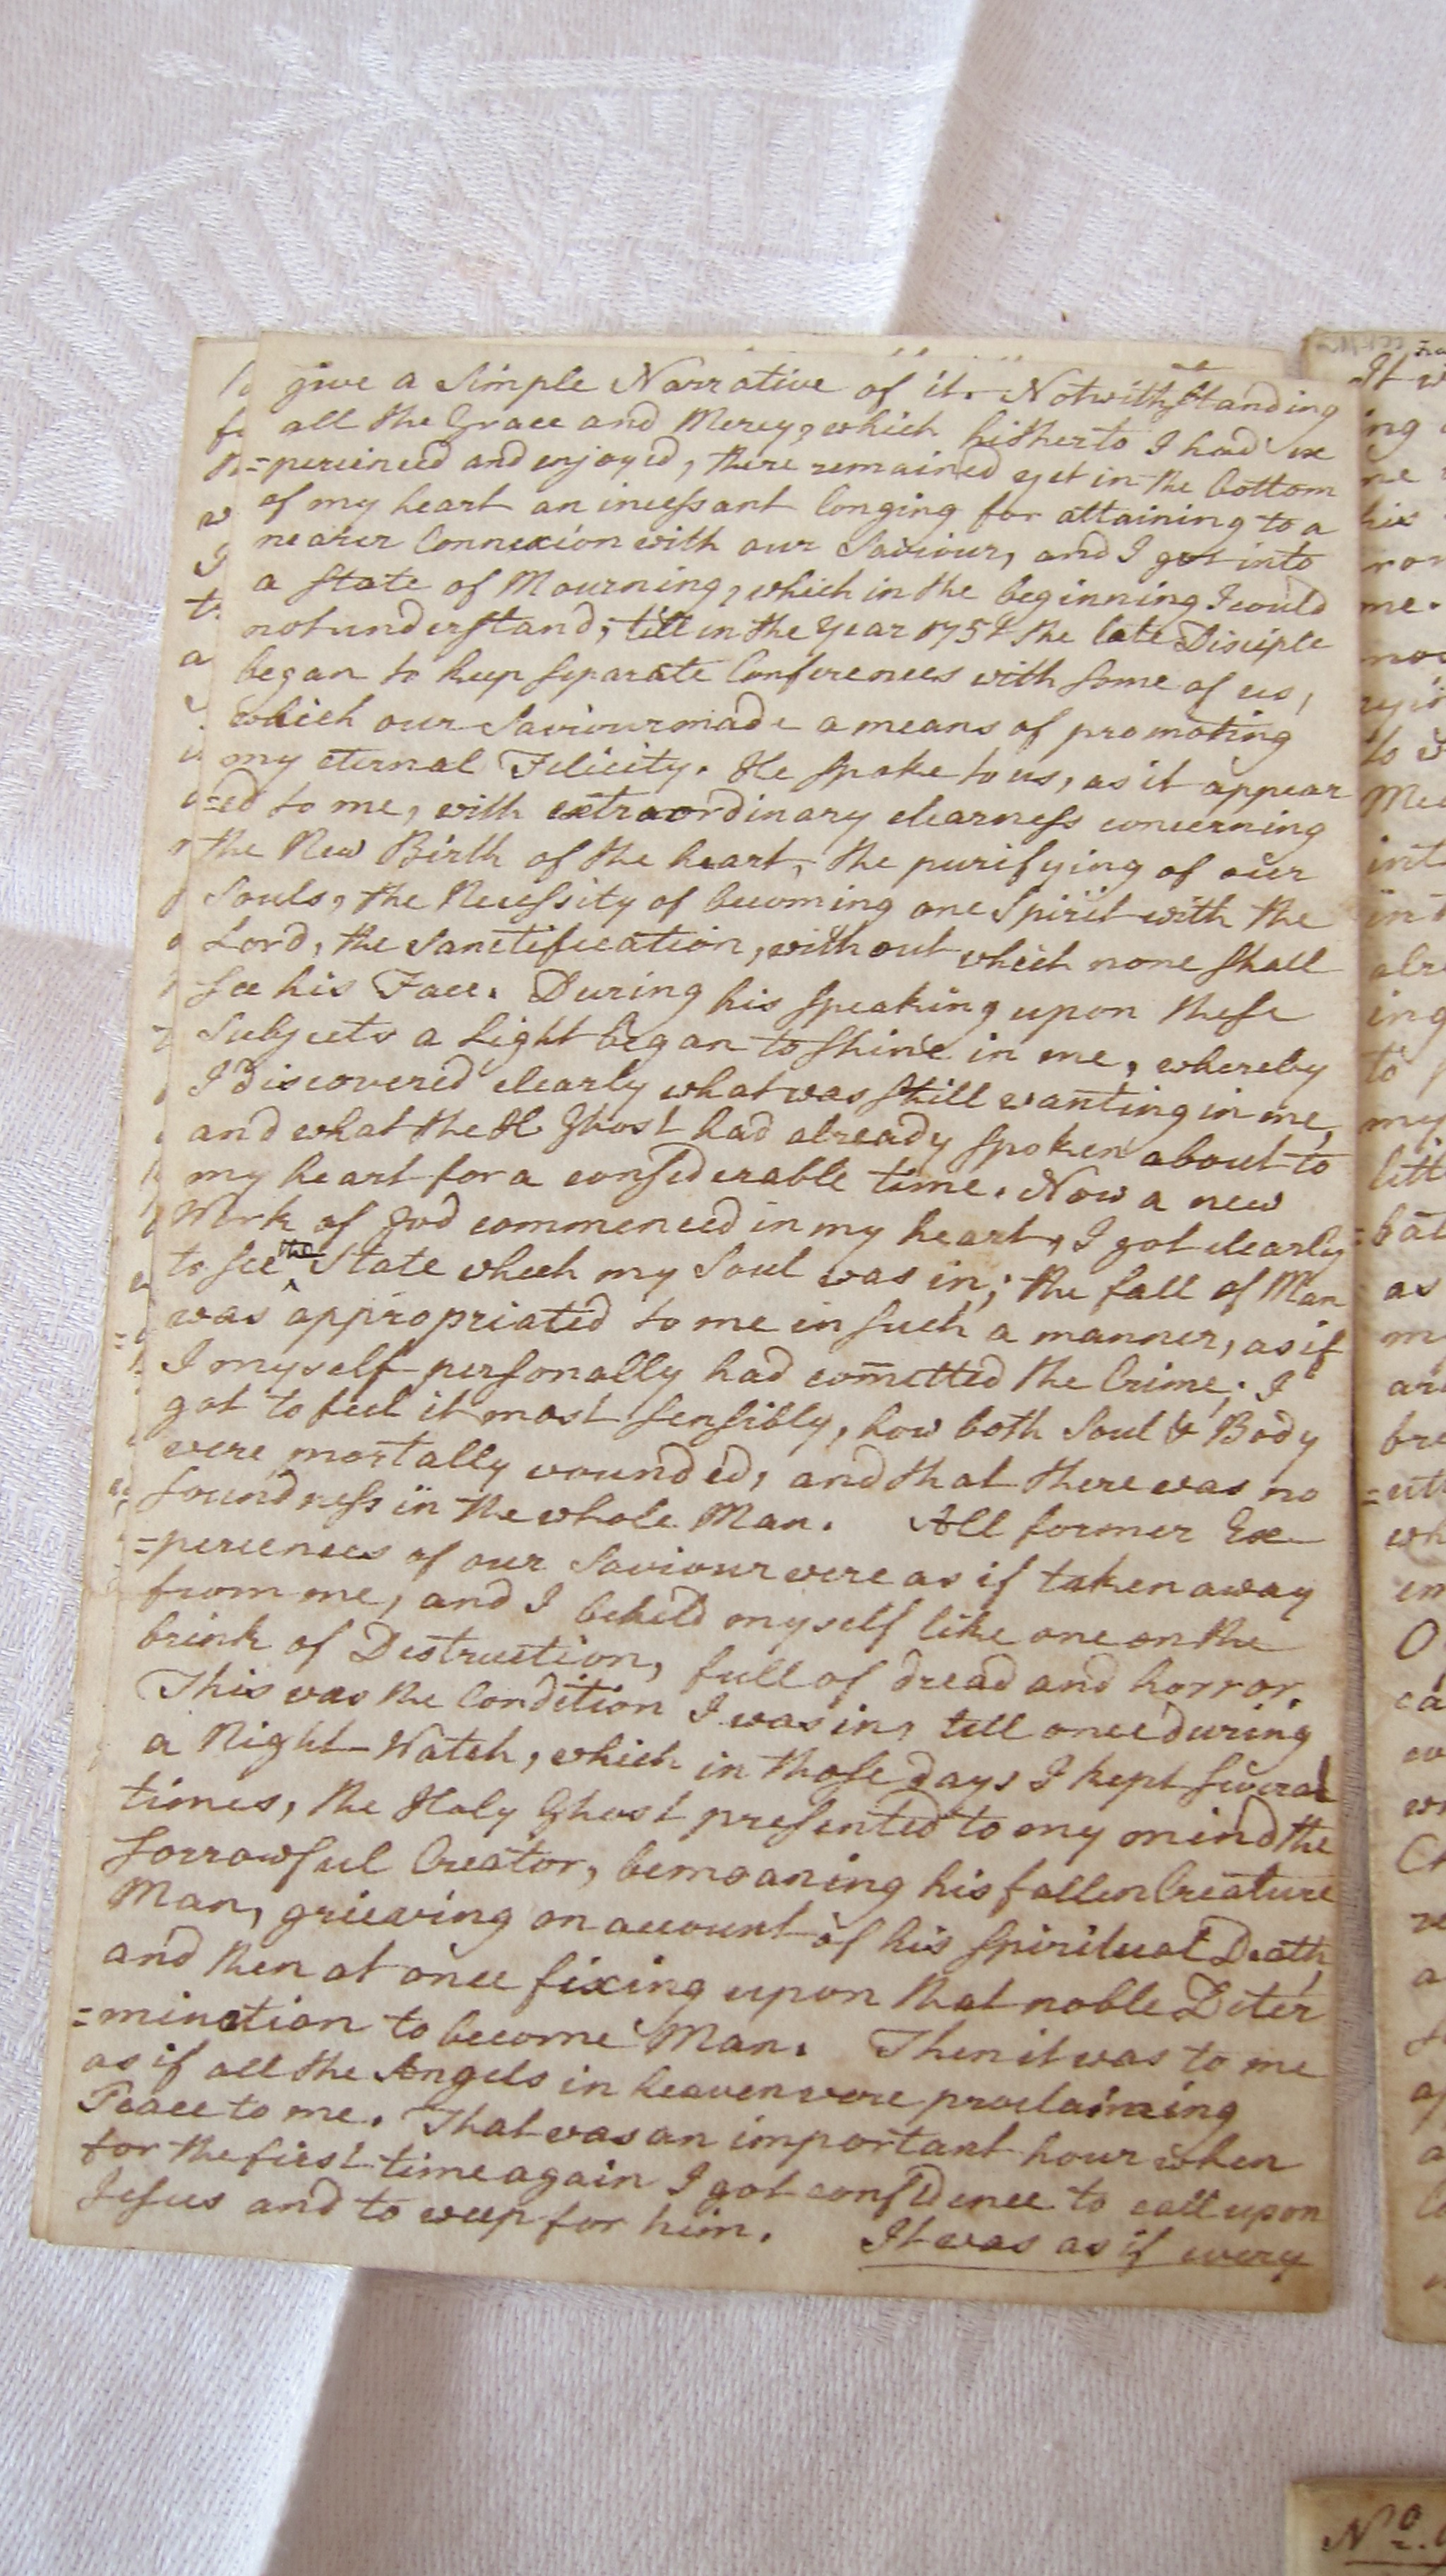 give a Simple Narrative of it. Notwithstanding
all the Grace and Mercy, which hitherto I had ex
=perienced and enjoyed, there remained yet in the bottom
of my heart an incessant longing for attaining to a
nearer Connexion with our Saviour, and I got into
a State of Mourning, which in the beginning I could
not understand; till in the Year the late Disciple
began to keep separate Conferences with some of us,
which our Saviour made a means of promoting
my eternal Felicity. He spoke to us, as it appear
=ed to me, with extraordinary clearness concerning
the New Birth of the heart, the purifying of our
Souls, the Necessity of becoming one Spirit with the
Lord, the Sanctification, without which none shall
see his Face. During his speaking upon these
Subjects a Light began to shine in me, whereby
I discovered clearly what was still wanting in me,
and what the H. Ghost had already spoken about to
my heart for a considerable time. Now a new
Work of God commenced in my heart, I got clearly
to see the State which my Soul was in; the fall of Man
was appropriated to me in such a manner, as if
I myself personally had com̄itted the Crime; I
got to feel it most sensibly, how both Soul & Body
were mortally wounded, and that there was no
soundness in the whole Man. All former Ex
=periences of our Saviour were as if taken away
from me, and I beheld myself like one on the
brink of Destruction, full of dread and horror.
This was the Condition I was in, till once during
a Night-Watch, which in those days I kept several
times, the Holy Ghost presented to my mind the
sorrowful Creator, bemoaning his fallen Creature
Man, grieving on account of his spiritual Death,
and then at once fixing upon that noble Deter
=mination to become Man. Then it was to me
as if all the Angels in heaven were proclaiming
Peace to me. That was an important hour when
for the first time again I got confidence to call upon
Jesus and to weep for him. It was as if every
No.